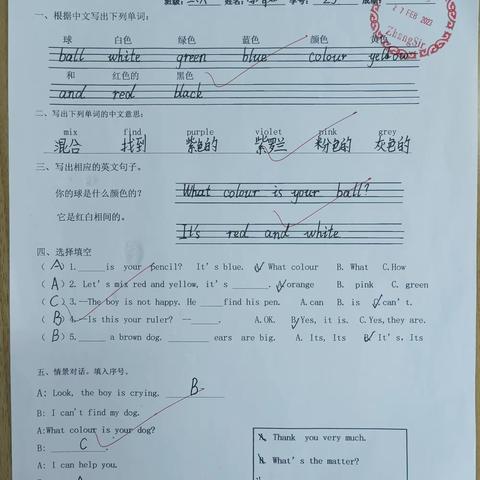 班级: 姓名: 学号: 25 成绩:
17 FEB 2023
ZhangSir
一、根据中文写出下列单词:
球 白色 绿色 蓝色 颜色 黄色
ball white green blue colour yellow
和 红色的 黑色
and red black
二、写出下列单词的中文意思:
mix find purple violet pink grey
混合 找到 紫色的 紫罗兰 粉色的 灰色的
三、写出相应的英文句子。
你的球是什么颜色的? What colour is your ball?
它是红白相间的。 It's red and white
四、选择填空
( A ) 1.____is your pencil? It's blue. A. What colour B. What C.How
( A ) 2. Let's mix red and yellow, it's ______. A. orange B. pink C. green
( C ) 3.--The boy is not happy. He ____find his pen. A.can B. is C. can't.
( B ) 4.--Is this your ruler? --_____. A.OK. B.Yes, it is. C.Yes,they are.
( B ) 5.____ a brown dog. ______ ears are big. A. Its, Its B. It's, Its
五、情景对话。填入序号。
A: Look, the boy is crying. B
B: I can't find my dog.
A:What colour is your dog?
B: C .
A: I can help you.
A
A. Thank you very much.
B. What's the matter?